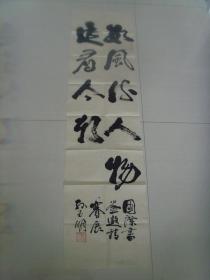 數風流人物
還看今朝
國際書
畫邀請
賽展